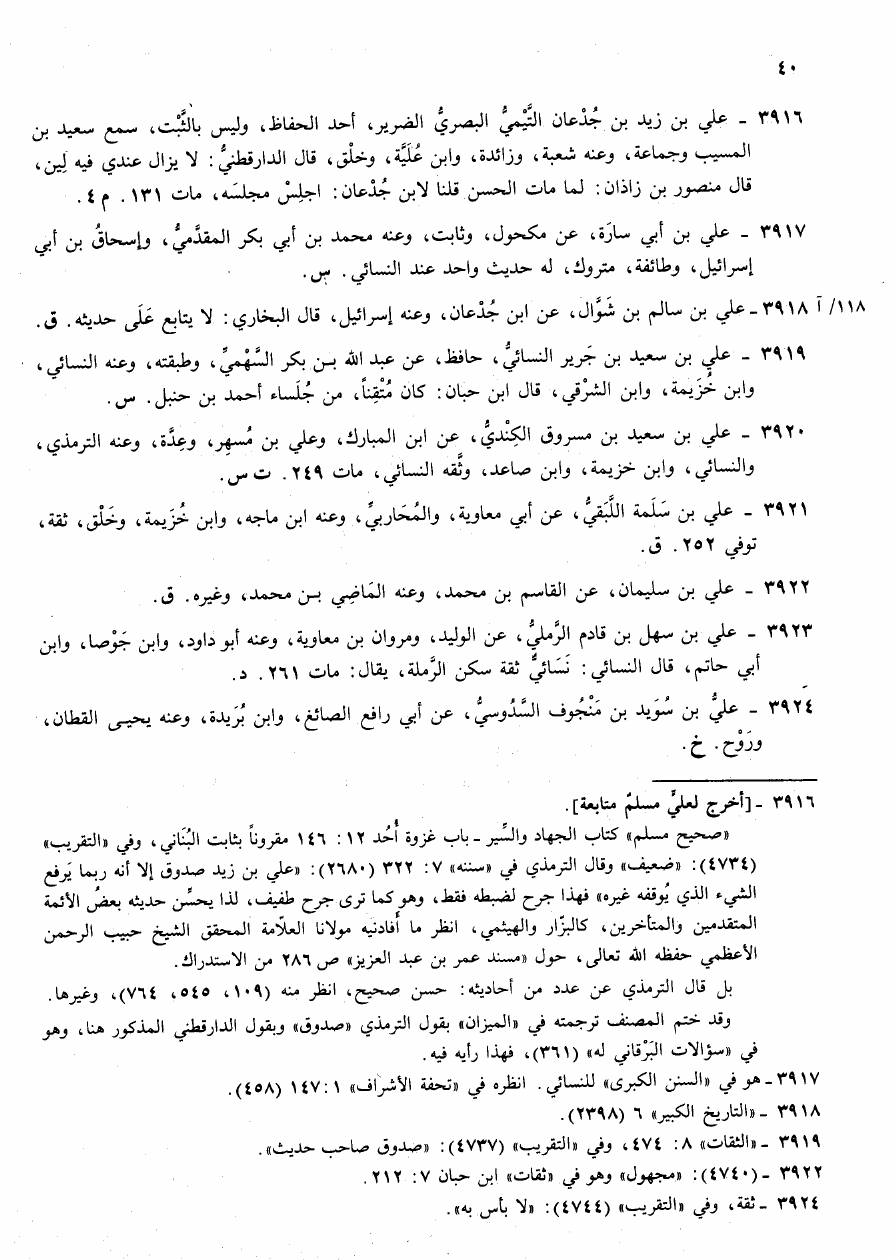 ٤٠
٣٩١٦ - علي بن زيد بن جُدْعان التَّيْميُّ البصريُّ الضرير، أحد الحفاظ، وليس بالثَّبْت، سمع سعيد بن
المسيب وجماعة، وعنه شعبة، وزائدة، وابن عُلَيَّة، وخلْق، قال الدارقطنيُّ: لا يزال عندي فيه لِين،
قال منصور بن زاذان: لما مات الحسن قلنا لابن جُدْعان: اجلِسْ مجلسَه، مات ١٣١. م ٤.
٣٩١٧ - علي بن أبي سارَة، عن مكحول، وثابت، وعنه محمد بن أبي بكر المقدَّميُّ، وإسحاقُ بن أبي
إسرائيل، وطائفة، متروك، له حديث واحد عند النسائي. س.
١١٨/ آ ٣٩١٨ - علي بن سالم بن شَوَّال، عن ابن جُدْعان، وعنه إسرائيل، قال البخاري: لا يتابع عَلَى حديثه. ق.
٣٩١٩ - علي بن سعيد بن جَرير النسائيُّ، حافظ، عن عبد الله بـن بكر السَّهْميِّ، وطبقته، وعنه النسائي،
وابن خُزَيمة، وابن الشرْقي، قال ابن حبان: كان مُتْقِناً، من جُلَساء أحمد بن حنبل. س.
٣٩٢٠ - علي بن سعيد بن مسروق الكِنْديُّ، عن ابن المبارك، وعلي بن مُسهِر، وعِدَّة، وعنه الترمذي،
والنسائي، وابن خزيمة، وابن صاعد، وثَّقه النسائي، مات ٢٤٩. ت س.
٣٩٢١ - علي بن سَلَمة اللَّبَقيُّ، عن أبي معاوية، والمُحَاربيِّ، وعنه ابن ماجه، وابن خُزَيمة، وخَلْق، ثقة،
توفي ٢٥٢. ق.
٣٩٢٢ - علي بن سليمان، عن القاسم بن محمد، وعنه المَاضِي بـن محمد، وغيره. ق.
٣٩٢٣ - علي بن سهل بن قادم الرَّمليُّ، عن الوليد، ومروان بن معاوية، وعنه أبو داود، وابن جَوْصا، وابن
أبي حاتم، قال النسائي: نَسَائيٌّ ثقة سكن الرَّملة، يقال: مات ٢٦١. د.
٣٩٢٤ - عليُّ بن سُوَيد بن مَنْجُوف السَّدُوسيُّ، عن أبي رافع الصائغ، وابن بُرَيدة، وعنه يحيـى القطان،
ورَوْح. خ.
٣٩١٦ - [أخرج لعليٍّ مسلمٌ متابعة].
«صحيح مسلم» كتاب الجهاد والسِّير - باب غزوة أُحُد ١٢: ١٤٦ مقروناً بثابت البُنَاني، وفي «التقريب»
(٤٧٣٤): «ضعيف» وقال الترمذي في «سننه» ٧: ٣٢٢ (٢٦٨٠): «علي بن زيد صدوق إلا أنه ربما يَرفع
الشيء الذي يُوقفه غيره» فهذا جرح لضبطه فقط، وهو كما ترى جرح طفيف، لذا يحسِّن حديثه بعضُ الأئمة
المتقدمين والمتأخرين، كالبزّار والهيثمي، انظر ما أفادنيه مولانا العلّامة المحقق الشيخ حبيب الرحمن
الأعظمي حفظه الله تعالى، حول «مسند عمر بن عبد العزيز» ص ٢٨٦ من الاستدراك.
بل قال الترمذي عن عدد من أحاديثه: حسن صحيح، انظر منه (١٠٩، ٥٤٥، ٧٦٤)، وغيرها.
وقد ختم المصنف ترجمته في «الميزان» بقول الترمذي «صدوق» وبقول الدارقطني المذكور هنا، وهو
في «سؤالات البَرْقاني له» (٣٦١)، فهذا رأيه فيه.
٣٩١٧ - هو في «السنن الكبرى» للنسائي. انظره في «تحفة الأشراف» ١: ١٤٧ (٤٥٨).
٣٩١٨ - «التاريخ الكبير» ٦ (٢٣٩٨).
٣٩١٩ - «الثقات» ٨: ٤٧٤، وفي «التقريب» (٤٧٣٧): «صدوق صاحب حديث».
٣٩٢٢ - (٤٧٤٠): «مجهول» وهو في «ثقات» ابن حبان ٧: ٢١٢.
٣٩٢٤ - ثقة، وفي «التقريب» (٤٧٤٤): «لا بأس به».